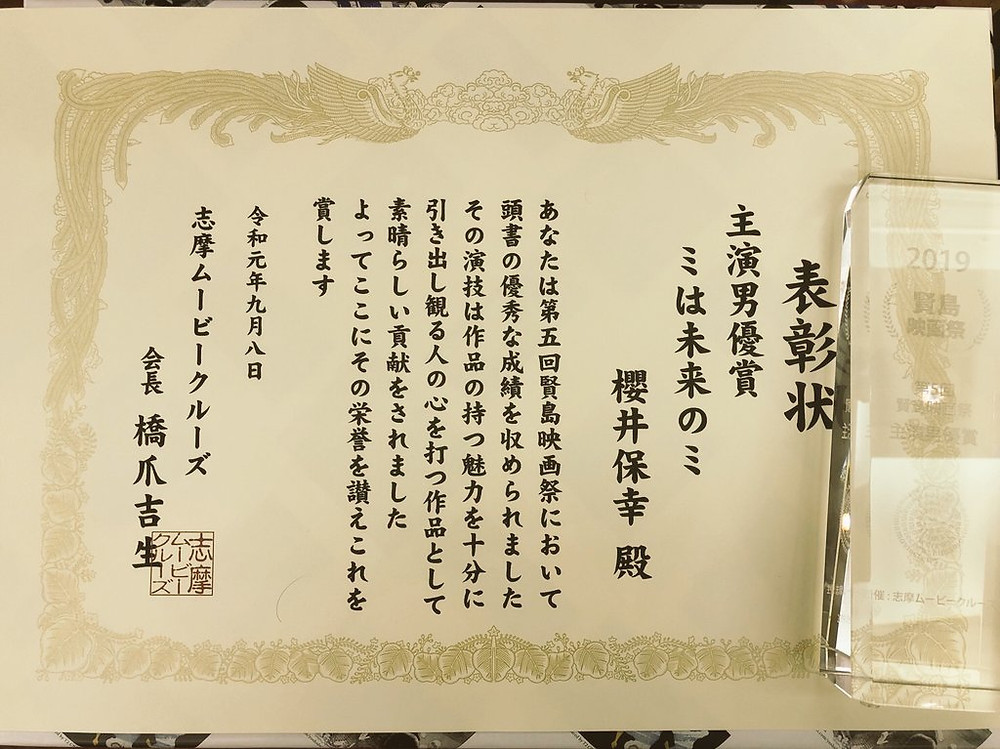 表彰状
主演男優賞
ミは未来のミ
櫻井保幸 殿
あなたは第五回賢島映画祭において
頭書の優秀な成績を収められました
その演技は作品の持つ魅力を十分に
引き出し観る人の心を打つ作品として
素晴らしい貢献をされました
よってここにその栄誉を讃えこれを
賞します
令和元年九月八日
志摩ムービークルーズ
会長 橋爪吉生
志摩
ムービー
クルーズ
2019
賢島
映画祭
賢島映画祭
主演男優賞
催:志摩ムービークルー